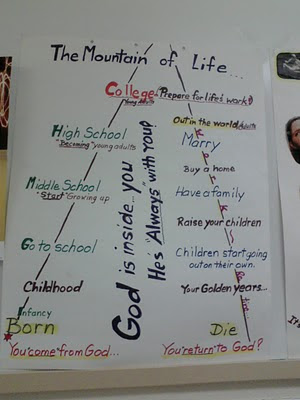 The Mountain of Life...
College - Prepare for life's work!)
Young Adults
High School
"Becoming" young adults
Middle School
"Start" Growing up
Go to school
Childhood
Infancy
Born
You come from God...
God is inside... you
He's "Always" with You!
Out in the world Adults
Marry
Buy a home
Have a family
Raise your children
Children start going
out on their own.
Your Golden years...
Die
You return to God?